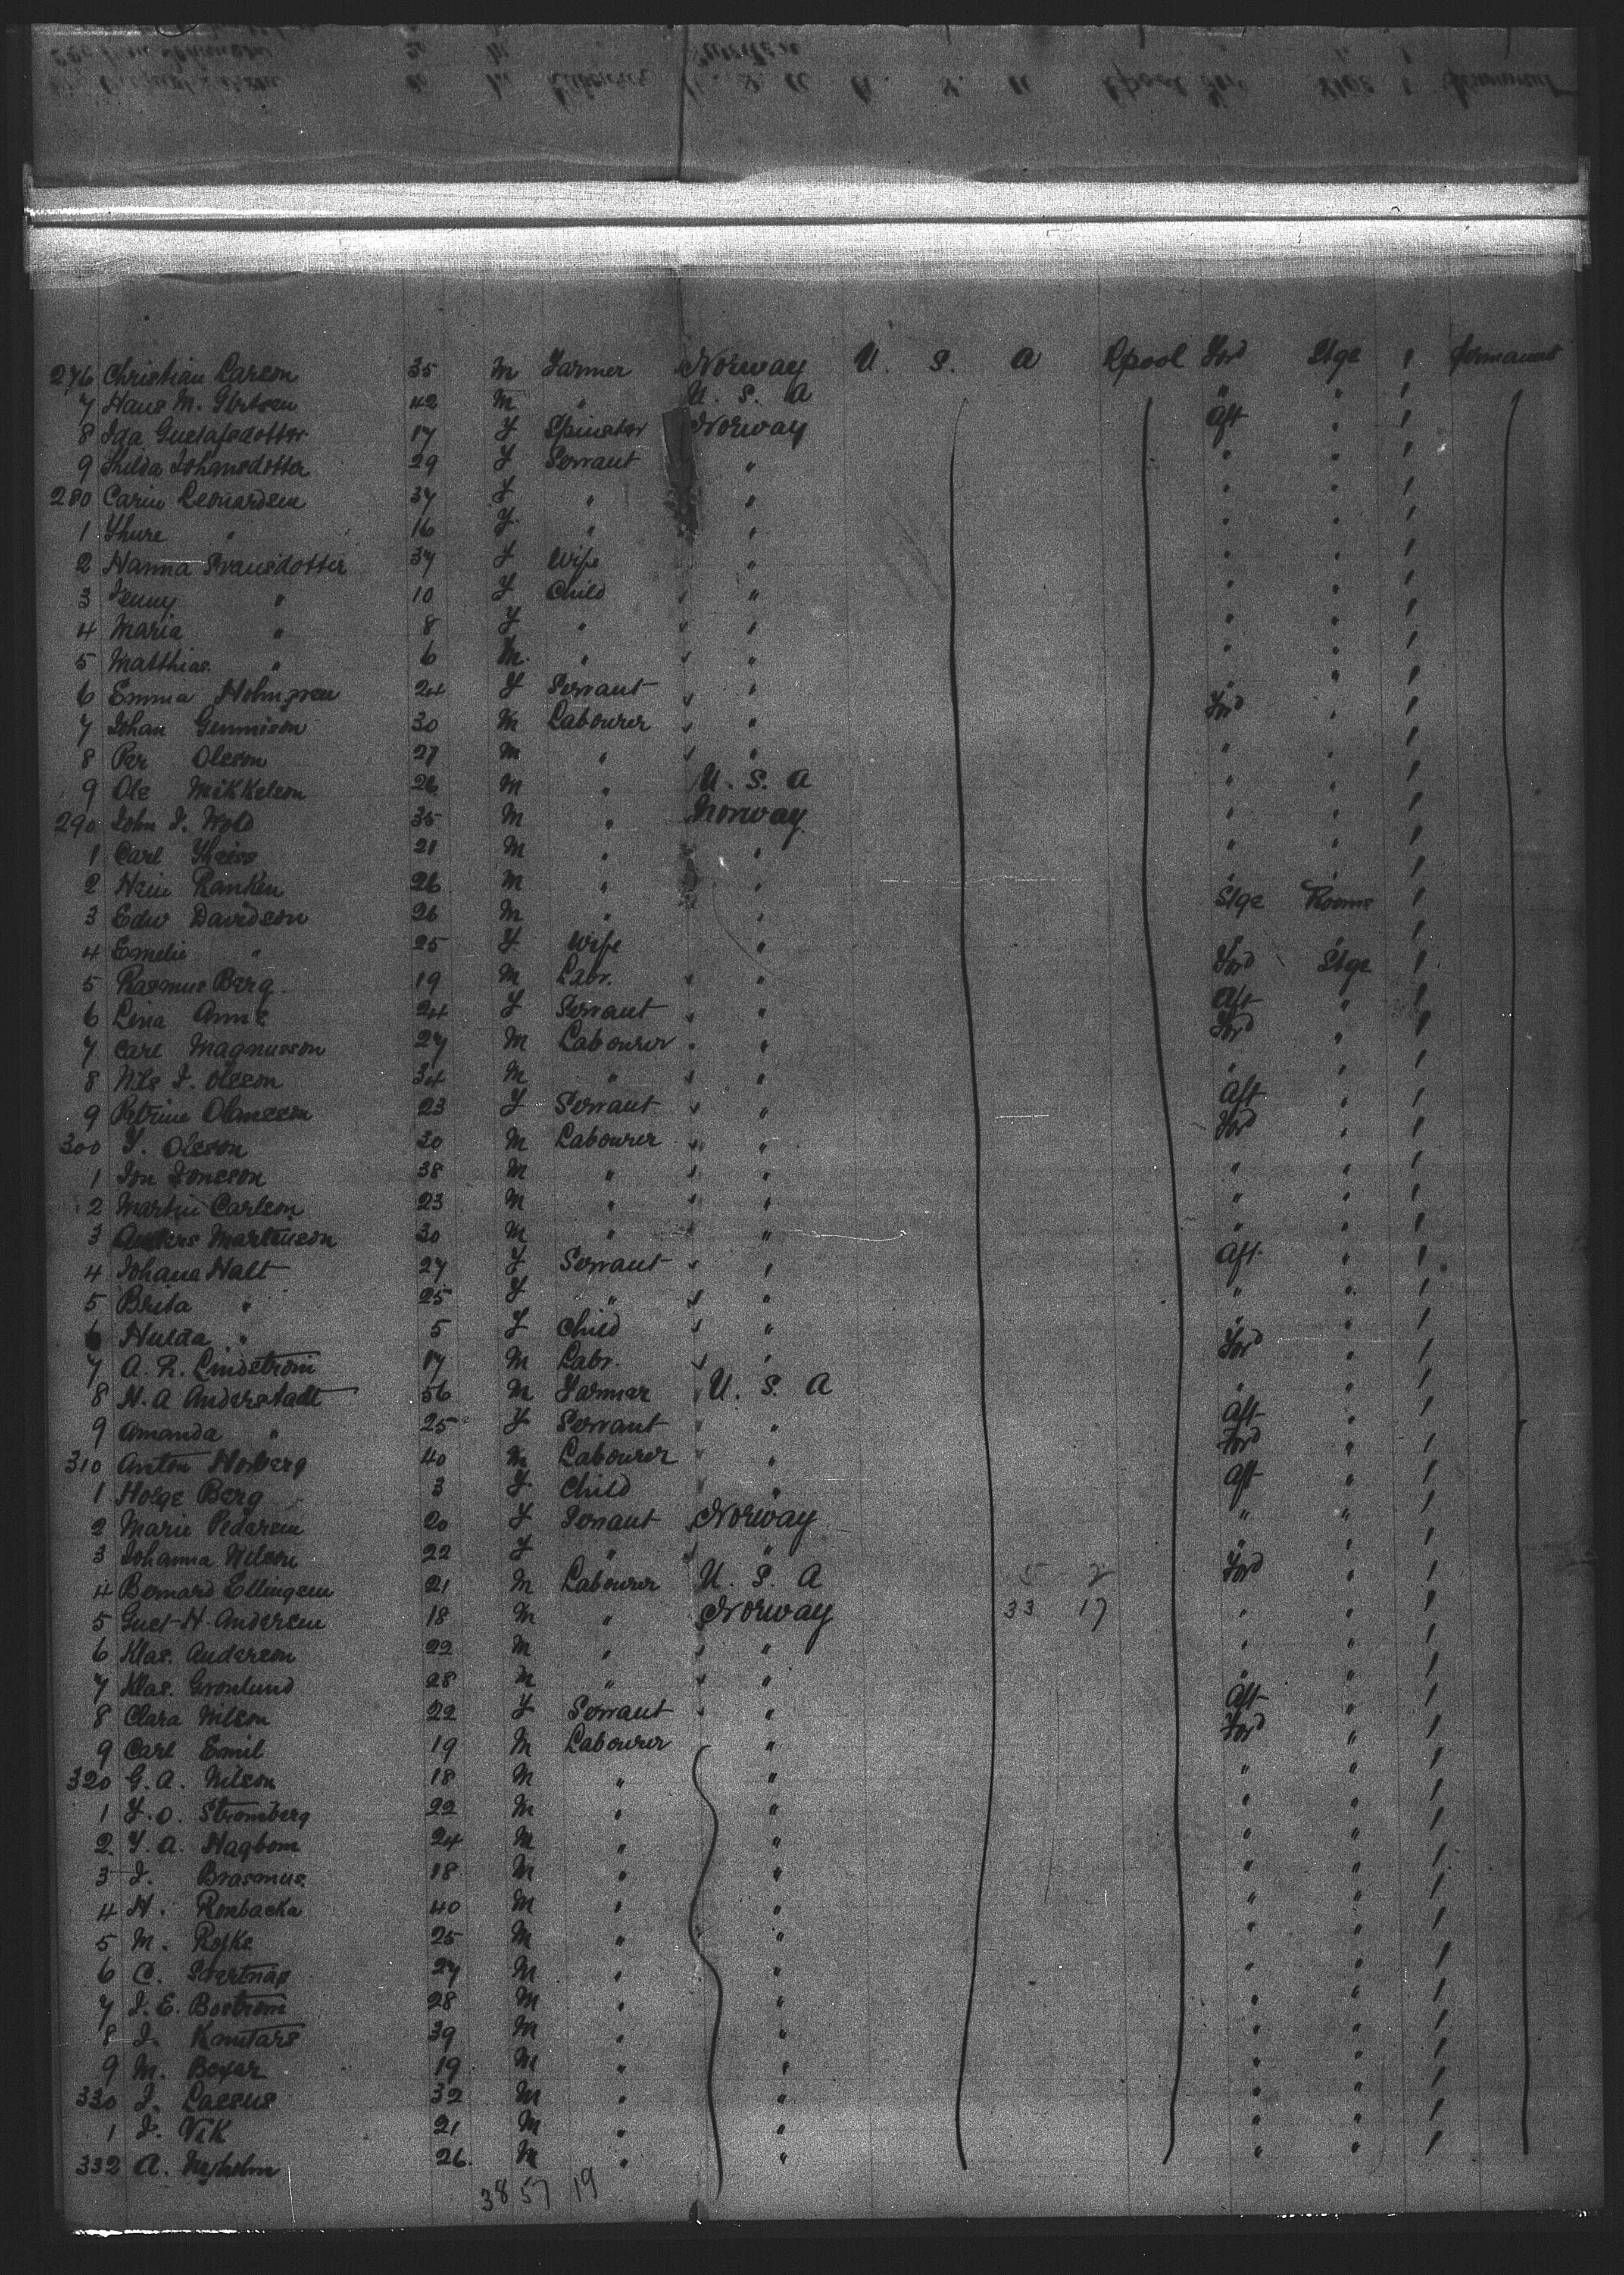 276 Christian Larson 35 M Farmer Norway U. S. A Lpool Ford Stge 1 Permanent
7 Hans M. 42 M " U. S. A " " 1
8 Ida Gustafsdotter 17 F Spinster Norway Aft " 1
9 Hilda Johansdotter 29 F Servant " " " 1
280 Carin Leonardsen 37 F " " " " 1
1 Thure " 16 F " " " " 1
2 Hanna Svensdotter 37 F Wife " " " 1
3 Jenny " 10 F Child " " " 1
4 Maria " 8 F " " " " 1
5 Matthias " 6 M " " " " 1
6 Emma Holmgren 24 F Servant " " " 1
7 Johan Gunnison 30 M Labourer " Ford " 1
8 Per Oleson 27 M " " " " 1
9 Ole Mikkelson 26 M " U. S. A " " 1
290 John J. Wold 35 M " Norway " " 1
1 Carl Theiss 21 M " " " " 1
2 Hein Ranken 26 M " " " " 1
3 Edw Davidson 26 M " " Stge Rooms 1
4 Emelie " 25 F Wife " " " 1
5 Rasmus Berg 19 M Labr. " Ford Stge 1
6 Lina Anne 24 F Servant " Aft " 1
7 Carl Magnusson 27 M Labourer " Ford " 1
8 Nils J. Olsson 34 M " " " " 1
9 Petrine Olamsson 23 F Servant " Aft " 1
300 F. Olsson 30 M Labourer " Ford " 1
1 Jon Jonsson 38 M " " " " 1
2 Martin Carlson 23 M " " " " 1
3 Anders Martenson 30 M " " " " 1
4 Johana Halt 27 F Servant " Aft " 1
5 Brita " 25 F " " " " 1
6 Hulda " 5 F Child " " " 1
7 A. R. Lindstrom 17 M Labr. " Ford " 1
8 N. A Anderstadt 56 M Farmer U. S. A " " 1
9 Amanda " 25 F Servant " Aft " 1
310 Anton Horberg 40 M Labourer " Ford " 1
1 Holge Berg 3 F Child " Aft " 1
2 Marie Pedersen 20 F Servant Norway " " 1
3 Johanna Nilson 22 F " " " " 1
4 Bernard Ellingsen 21 M Labourer U. S. A 5 2 Ford " 1
5 Gust H. Andersen 18 M " Norway 33 17 " " 1
6 Klas. Anderson 22 M " " " " 1
7 Klas. Gronlund 28 M " " " " 1
8 Clara Nilson 22 F Servant " Aft " 1
9 Carl Emil 19 M Labourer " Ford " 1
320 G. A. Nilson 18 M " " " " 1
1 F. O. Stromberg 22 M " " " " 1
2 F. A. Hagbom 24 M " " " " 1
3 J. Brasmus 18 M " " " " 1
4 H. Ronbacka 40 M " " " " 1
5 M. 25 M " " " " 1
6 C. Svartnäs 27 M " " " " 1
7 J. E. Bostrom 28 M " " " " 1
8 J. Knutars 39 M " " " " 1
9 M. Bexar 19 M " " " " 1
330 J. Lassus 32 M " " " " 1
1 J. Vik 21 M " " " " 1
332 A. 26 M " " " " 1
38 57 19